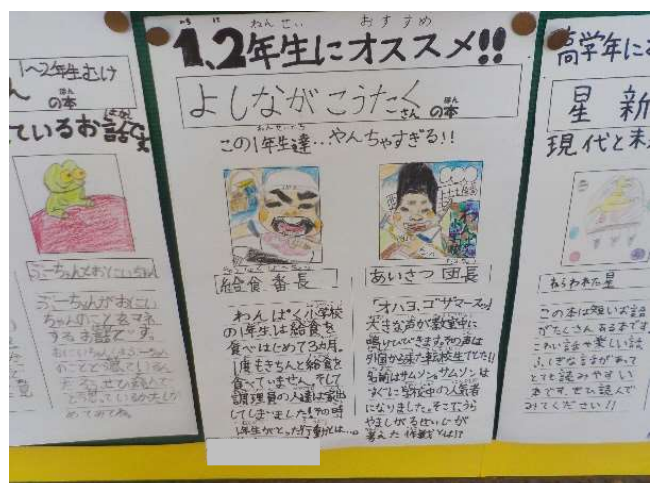 1~2年生むけ
の本
ているお話です
ぷーちゃんとおにいちゃん
ぷーちゃんがおにい
ちゃんのことをマネ
するお話です。
1,2年生にオススメ!!
よしながこうたくさんの本
この1年生達…やんちゃすぎる!!
給食番長
わんぱく小学校
の1年生は給食を
食べはじめて3カ月。
1度もきちんと給食を
食べていません。そして
調理員の人達は家出
してしまいました!その時
1年生がとった行動とは…
あいさつ団長
「オハヨ、ゴザマースッ」
大きな声が教室中に
鳴りひびきます。その声は
外国から来た転校生でした!!
名前はサムソン。サムソンは
すぐに学校中の人気者
になりました。そこでうら
やましがるせいじが
考えた作戦とは!?
高学年に
星新
現代と未
ねらわれた星
この本は短いお話
がたくさんある本です
こわい話や楽しい話
ふしぎな話があって
とても読みやすい
本です。ぜひ読んで
みてください!!